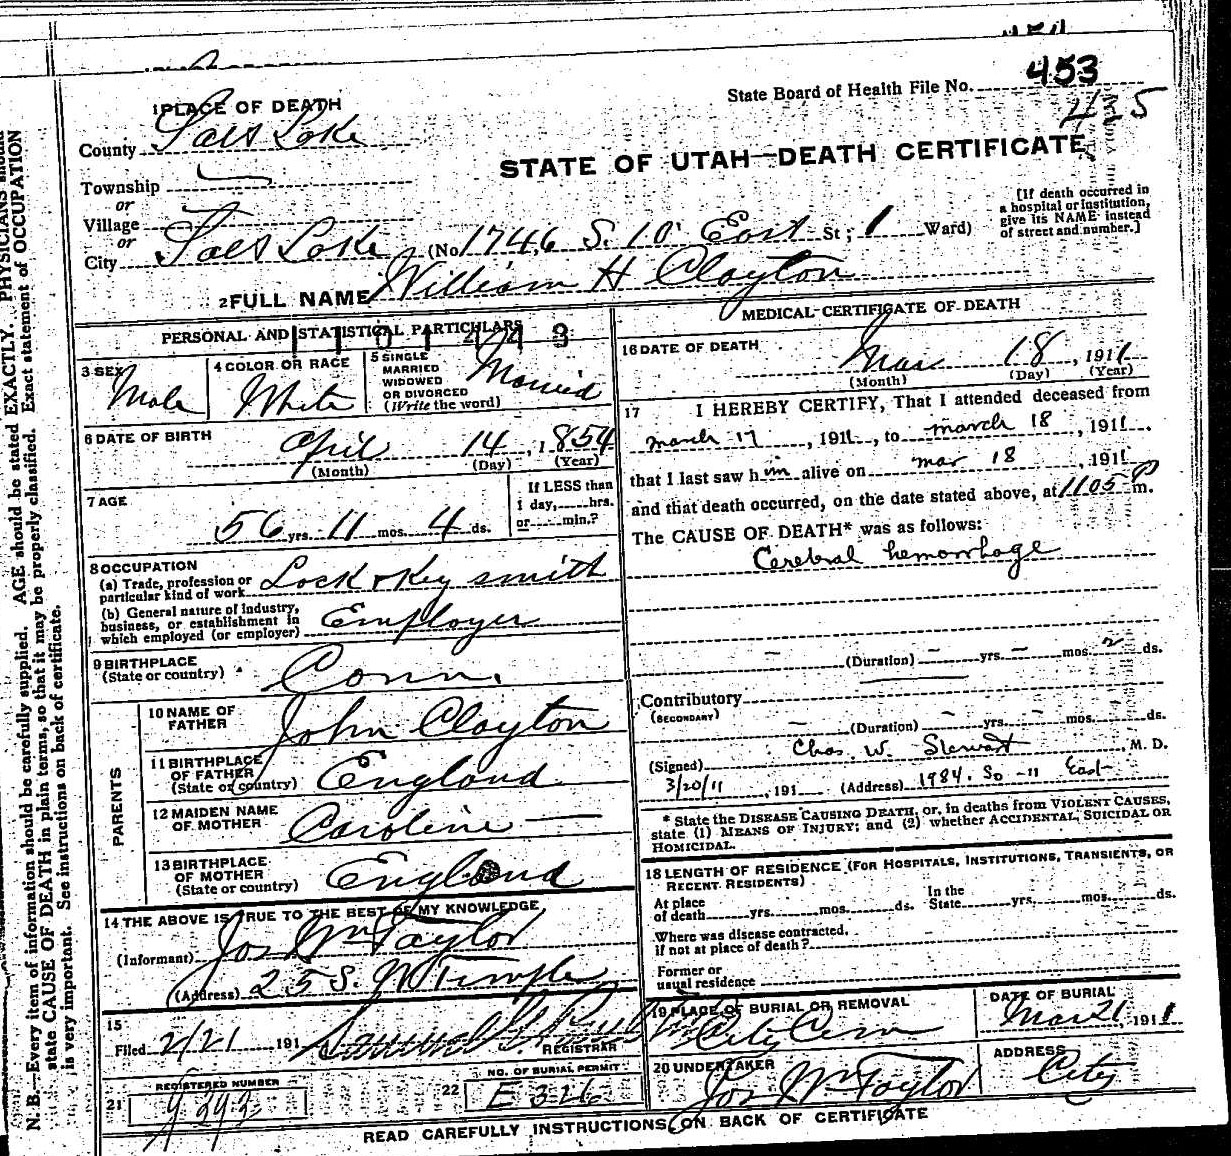 453
State Board of Health File No.
1 PLACE OF DEATH
County Salt Lake
STATE OF UTAH—DEATH CERTIFICATE
Township
or
Village
or
City Salt Lake (No 1746 S. 10 East St; 1 Ward)
[If death occurred in
a hospital or institution,
give its NAME instead
of street and number.]
2 FULL NAME William H Clayton
PERSONAL AND STATISTICAL PARTICULARS
3 SEX Male
4 COLOR OR RACE White
5 SINGLE
MARRIED
WIDOWED
OR DIVORCED
(Write the word) Married
6 DATE OF BIRTH April 14, 1854
(Month) (Day) (Year)
7 AGE
56 yrs. 11 mos. 4 ds.
If LESS than
1 day,____hrs.
or____min.?
8 OCCUPATION
(a) Trade, profession or
particular kind of work Lock & Key smith
(b) General nature of industry,
business, or establishment in
which employed (or employer) Employer
9 BIRTHPLACE
(State or country) Conn.
PARENTS
10 NAME OF
FATHER John Clayton
11 BIRTHPLACE
OF FATHER
(State or country) England
12 MAIDEN NAME
OF MOTHER Caroline —
13 BIRTHPLACE
OF MOTHER
(State or country) England
14 THE ABOVE IS TRUE TO THE BEST OF MY KNOWLEDGE
(Informant) Jos Wm Taylor
(Address) 25 S. W Temple
15
Filed 2/21 191
REGISTRAR
REGISTERED NUMBER
21
22 NO. OF BURIAL PERMIT
E 326
MEDICAL CERTIFICATE OF DEATH
16 DATE OF DEATH
Mar 18, 1911
(Month) (Day) (Year)
17 I HEREBY CERTIFY, That I attended deceased from
March 17, 1911, to March 18, 1911.
that I last saw him alive on Mar 18, 1911
and that death occurred, on the date stated above, at 1105 P m.
The CAUSE OF DEATH* was as follows:
Cerebral hemorrhage
— (Duration) — yrs. — mos. 2 ds.
Contributory
(SECONDARY)
— (Duration) — yrs. — mos. — ds.
(Signed) Chas. W. Stewart M. D.
3/20/11, 191 (Address) 1984. So - 11 East
* State the DISEASE CAUSING DEATH, or, in deaths from VIOLENT CAUSES,
state (1) MEANS OF INJURY; and (2) whether ACCIDENTAL, SUICIDAL OR
HOMICIDAL.
18 LENGTH OF RESIDENCE (FOR HOSPITALS, INSTITUTIONS, TRANSIENTS, OR
RECENT RESIDENTS)
At place
of death yrs. mos. ds.
In the
State yrs. mos. ds.
Where was disease contracted,
if not at place of death?
Former or
usual residence
19 PLACE OF BURIAL OR REMOVAL
City Cem
DATE OF BURIAL
Mar 21, 1911
20 UNDERTAKER
Jos Wm Taylor
ADDRESS
City
READ CAREFULLY INSTRUCTIONS ON BACK OF CERTIFICATE
N. B.—Every item of information should be carefully supplied. AGE should be stated EXACTLY. PHYSICIANS should
state CAUSE OF DEATH in plain terms, so that it may be properly classified. Exact statement of OCCUPATION
is very important. See instructions on back of certificate.